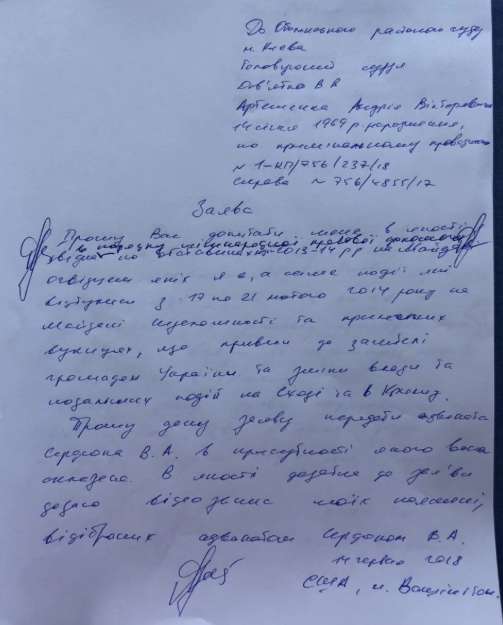 До Оболонського районного суду
м. Києва
Головуючий суддя
Дев'ятко В.В
Артеменка Андрія Вікторовича
14 січня 1969 р. народження,
по кримінальному провадженню
№ 1-кп/756/237/18
справа № 756/4855/17
Заява
Прошу Вас допитати мене в якості
в порядку міжнародної правової допомоги
свідка по 2013-14 рр на Майдані
очевидцем яких я є, а саме події які
відбулися з 17 по 21 лютого 2014 року на
Майдані Незалежності та прилеглих
вулицях, що привели до загибелі
громадян України та зміни влади та
подальших подій на Сході та в Криму.
Прошу дану заяву передати адвоката
Сердюка В.А. в присутності якого вона
складена. В якості додатка до заяви
додаю відеозапис моїх пояснень,
відібраних адвокатом Сердюком В.А.
14 червня 2018
США, м. Вашингтон.